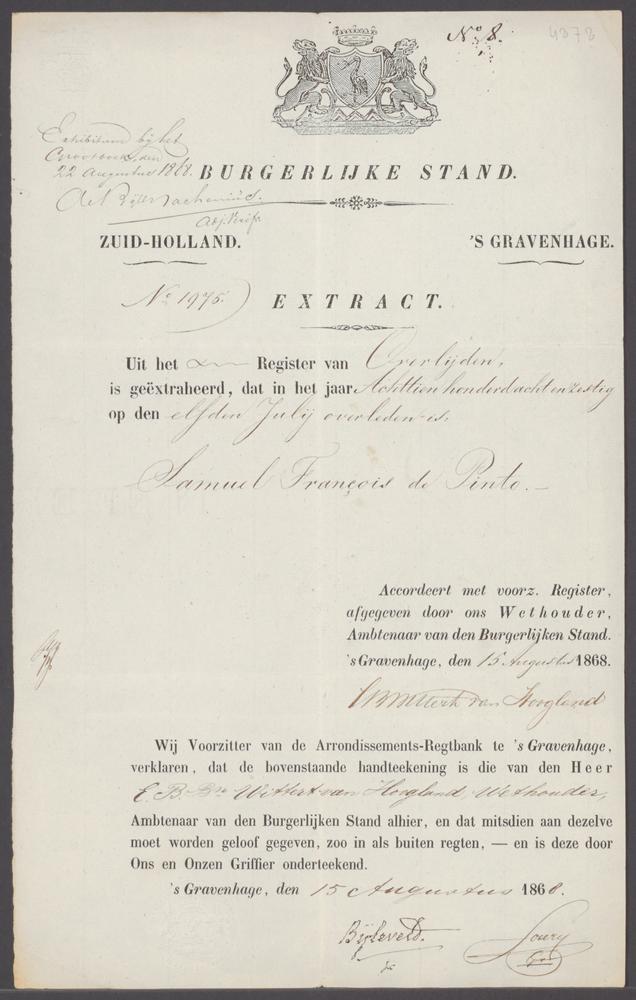 N.º 8.
4378
Exhibitum bij het
22 Augustus 1868.
BURGERLIJKE STAND.
ZUID-HOLLAND.
'S GRAVENHAGE.
N.º 1975.
EXTRACT.
Uit het Register van Overlijden,
is geëxtraheerd, dat in het jaar Achttien honderd acht en zestig
op den elfden Julij overleden is,
Samuel François de Pinto.
Accordeert met voorz. Register,
afgegeven door ons Wethouder,
Ambtenaar van den Burgerlijken Stand.
's Gravenhage, den 15 Augustus 1868.
Wittert van Hoogland
Wij Voorzitter van de Arrondissements-Regtbank te 's Gravenhage,
verklaren, dat de bovenstaande handteekening is die van den Heer
E. B. Bn Wittert van Hoogland, Wethouder,
Ambtenaar van den Burgerlijken Stand alhier, en dat mitsdien aan dezelve
moet worden geloof gegeven, zoo in als buiten regten, — en is deze door
Ons en Onzen Griffier onderteekend.
's Gravenhage, den 15 Augustus 1868.
Bijleveld.